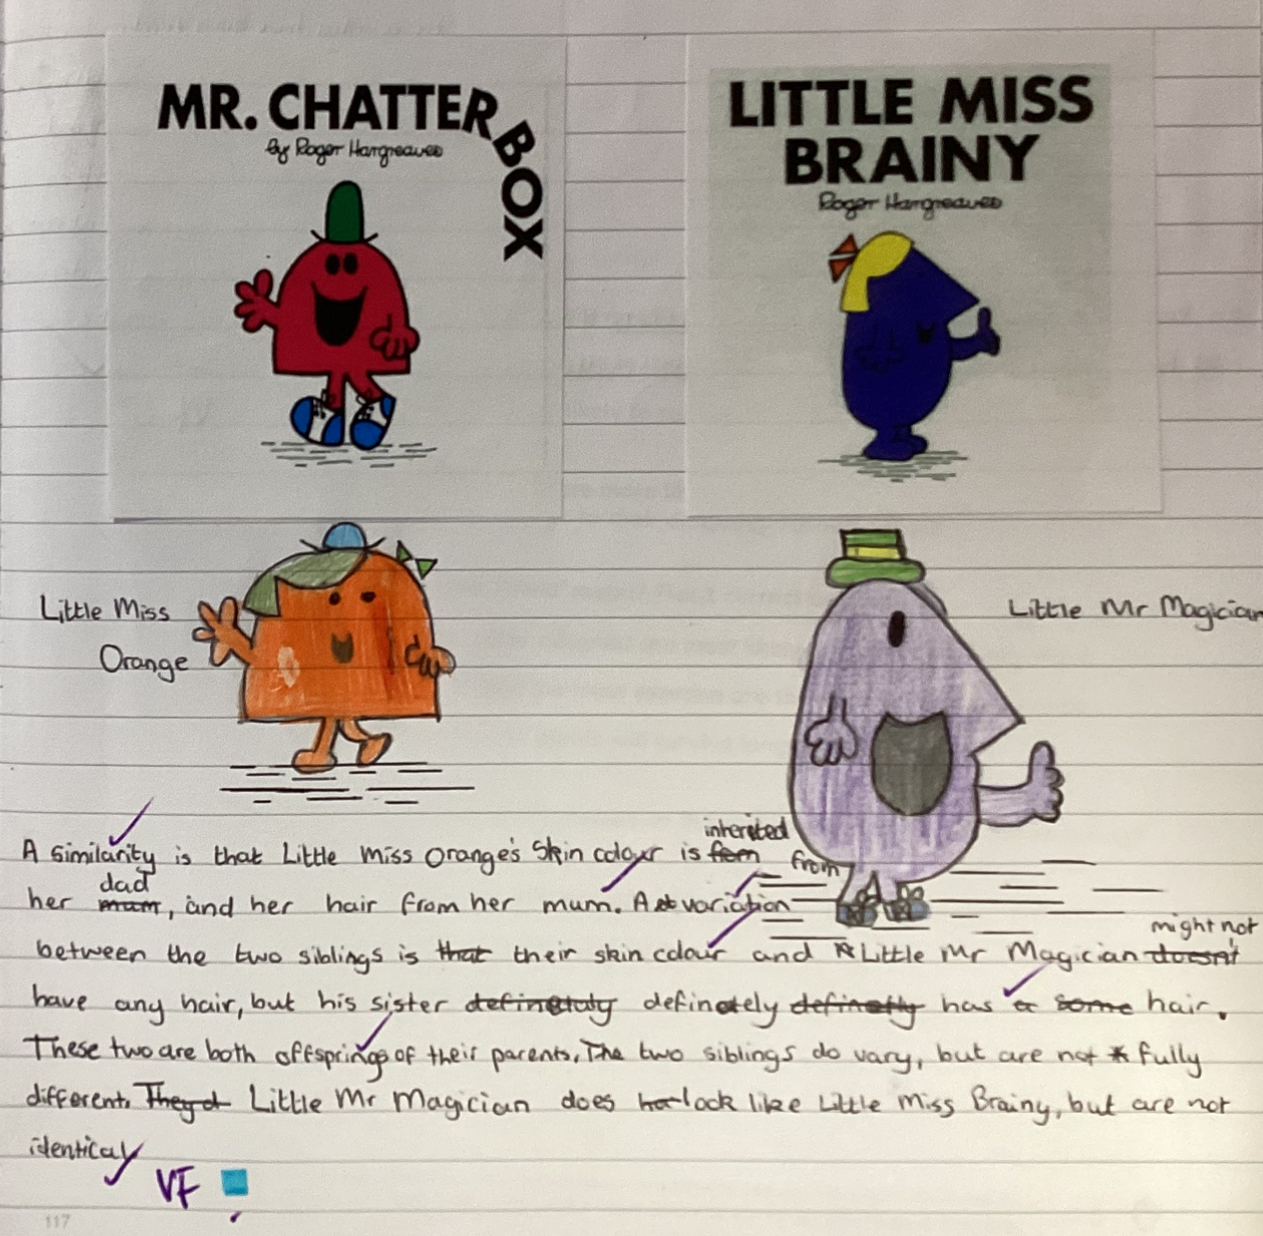 MR. CHATTERBOX
by Roger Hargreaves
LITTLE MISS
BRAINY
Roger Hargreaves
Little Miss
Orange
Little Mr Magician
A similarity is that Little Miss Orange's skin colour is from inherited from
her mum dad, and her hair from her mum. A variation
between the two siblings is that their skin colour and Little Mr Magician doesn't might not
have any hair, but his sister definetuly definetely definetly has a some hair.
These two are both offsprings of their parents. The two siblings do vary, but are not fully
different. They d Little Mr Magician does not look like Little Miss Brainy, but are not
identical
VF
117